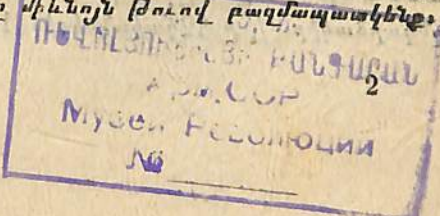 միևնոյն թուով բազմապատկենք։
2
ՌԵՎՈԼՅՈՒՑԻԱՅԻ ԹԱՆԳԱՐԱՆ
Арм.ССР
Музей Революции
№